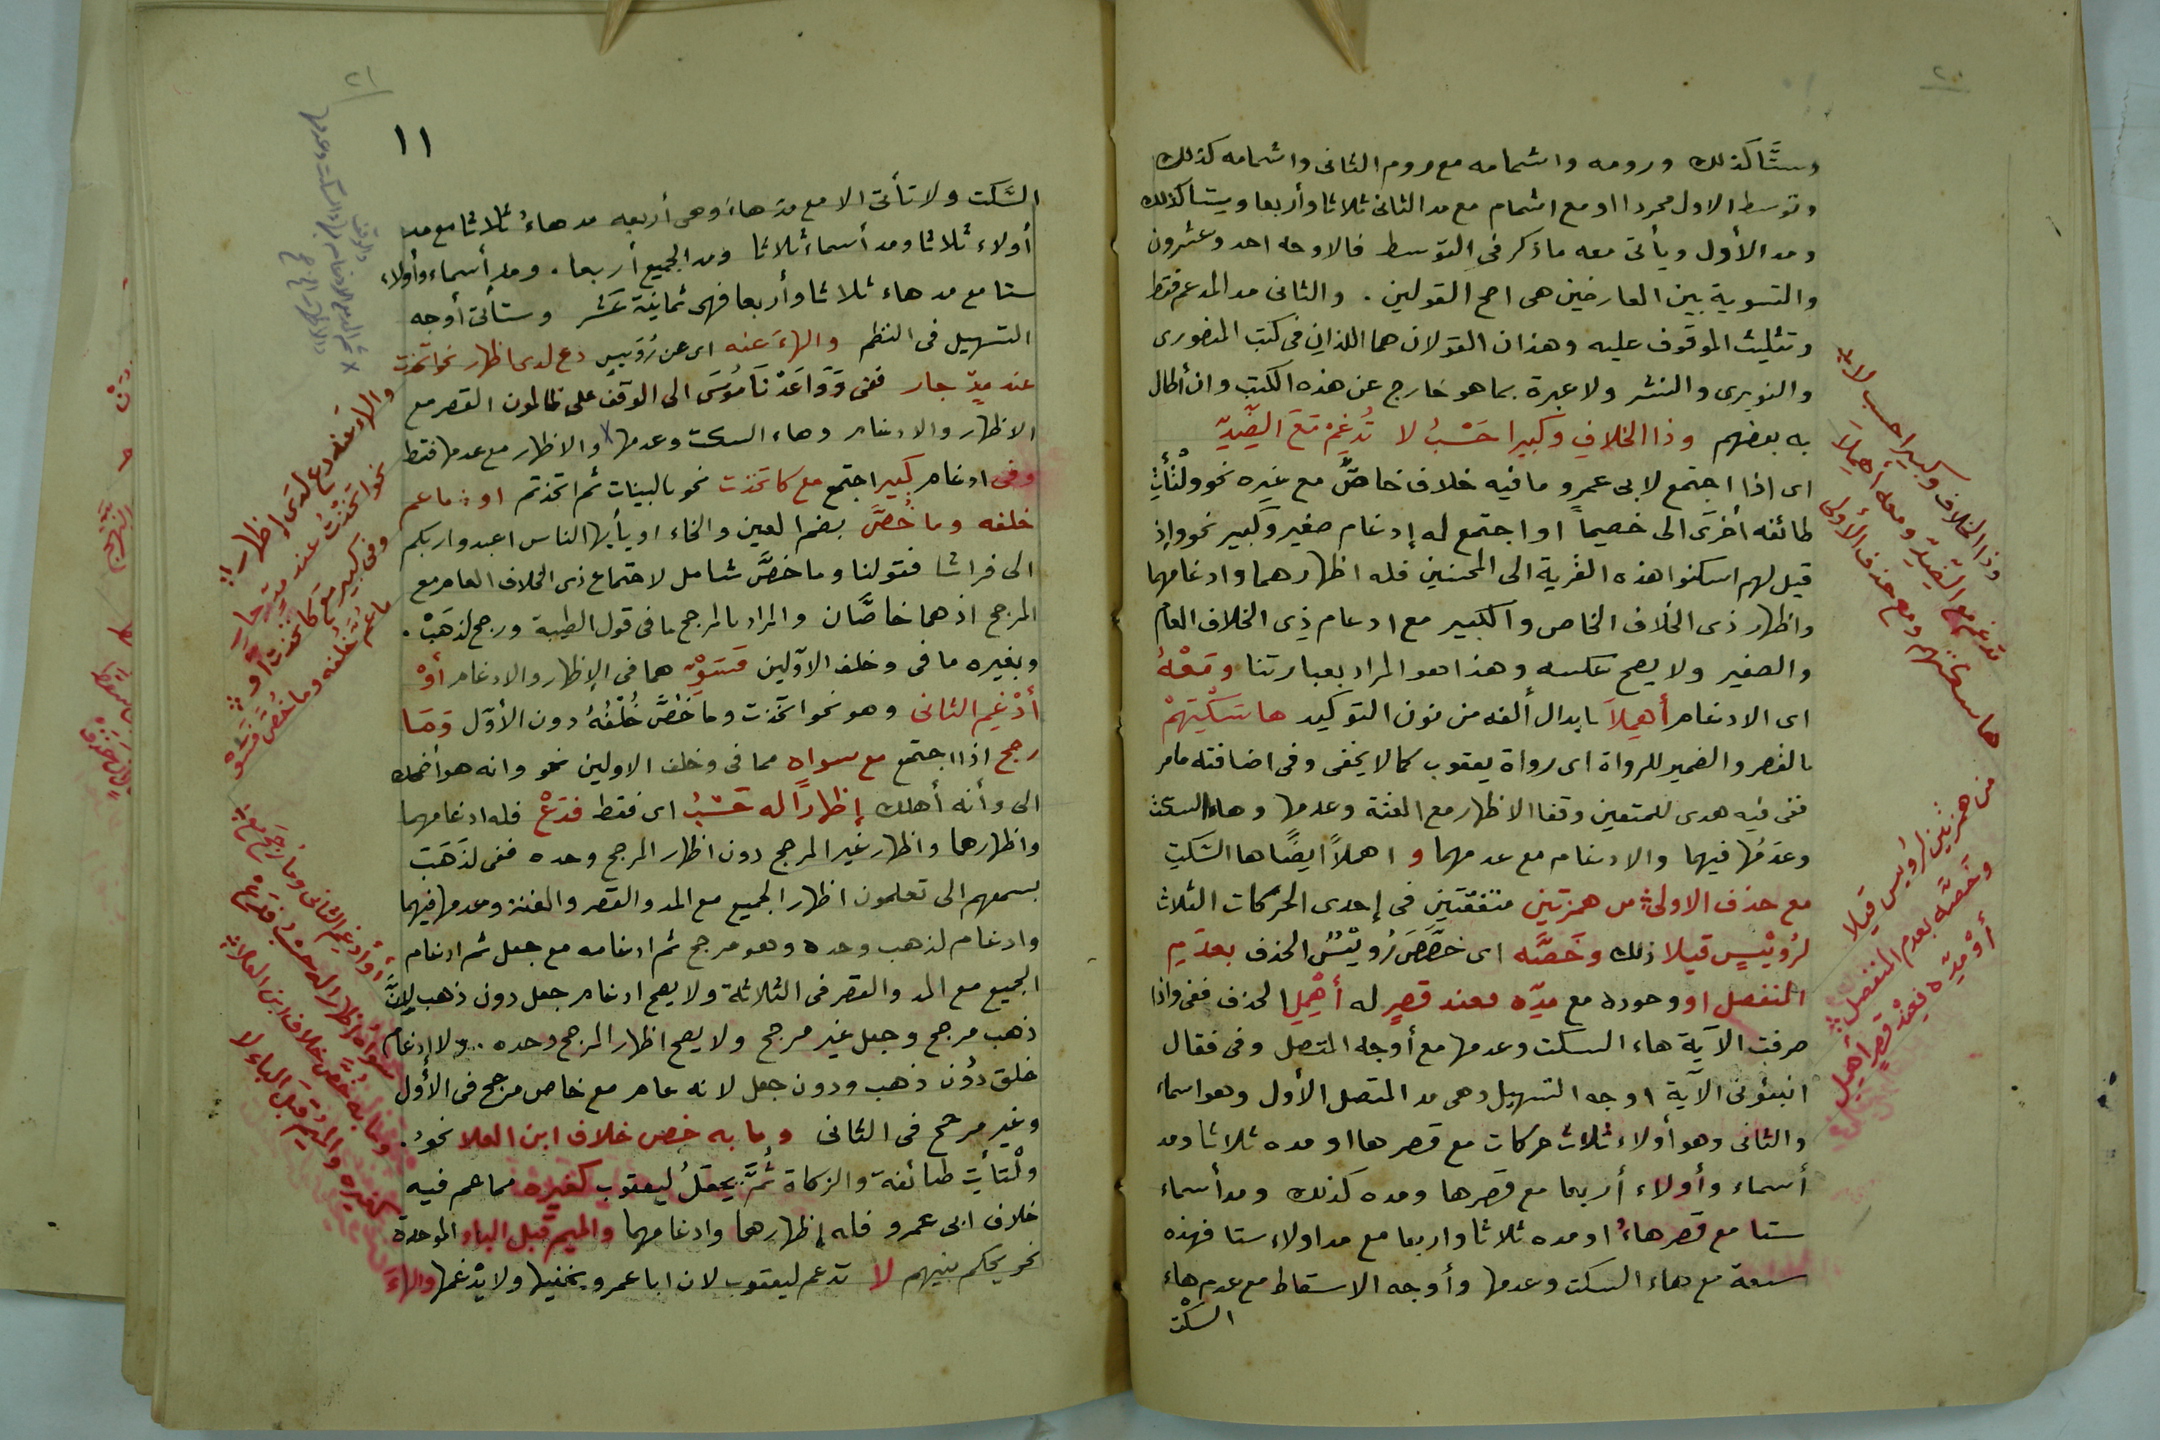 ٢٠
وستًّا كذلك ورومه واشمامه مع روم الثانى واشمامه كذلك
وتوسط الاول مجردا او مع اشمام مع مد الثانى ثلاثا وأربعا وستا كذلك
ومد الأول ويأتى معه ماذكر فى التوسط فالاوجه احد وعشرون
والتسوية بين العارضين هى اصح القولين . والثانى مد المدغم فقط
وتثليث الموقوف عليه وهذان القولان هما اللذان فى كتب المنصورى
والنويرى والنشر ولا عبرة بما هو خارج عن هذه الكتب وان أطال
به بعضهم وذا الخلافِ وكبيرا حَسْبُ لا تُدغِمْ مَعَ الضِّدِّ
اى اذا اجتمع لابى عمرو مافيه خلاف خاصٌّ مع غيره نحو ولْتَأْتِ
طائفه أخرَى الى خصيماً او اجتمع له إدغام صغير وكبير نحو وإذ
قيل لهم اسكنوا هذه القرية الى المحسنين فله اظهارهما وادغامهما
واظهار ذى الخلاف الخاص والكبير مع ادغام ذِى الخلاف العام
والصغير ولا يصح عكسه وهذا هو المراد بعبارتنا ومَعْهُ
اى الادغام أهمِلاَ بابدال ألفه من نون التوكيد ها سَكْتِهِمْ
بالقصر والضمير للرواة اى رواة يعقوب كما لا يخفى وفى اضافته مامر
ففى فيه هدى للمتقين وقفا الاظهار مع الغنة وعدمها وهاء السكت
وعدمُها فيهما والادغام مع عدمهما و اهملاً ايضًا ها السَّكْتِ
مع حذف الاولى من همزتين متفقتَين فى إحدى الحركات الثلاث
لرُوَيْسٍ قيلا ذلك وخَصَّه اى خصَّصَ رُوَيْسٌ الحذف بعدَمِ
المنفصل او وجوده مع مدِّه فعند قصرٍ له أهْمِلِ الحذف ففى واذا
صرفت الآية هاء السكت وعدمها مع أوجه المتصل وفى فقال
انبئونى الآية اوجه التسهيل وهى مد المتصل الأول وهو اسماء
والثانى وهو أولاء ثلاث حركات مع قصر ها او مده ثلاثا ومد
أسماء وأولاء أربعا مع قصرها ومده كذلك ومد أسماء
ستا مع قصر هاءُ او مده ثلاثا واربعا مع مد اولاء ستا فهذه
سبعة مع هاء السكت وعدمها وأوجه الاسقاط مع عدم هاء
السكْت
وذا الخلاف وكبيرا حسب لا
تدغم مع الضدّ ومعه أهمِلاَ
ها سكتهم ومع حذف الأولى
من همزتين لرُوَيس قيلا
وخصَّه بعدم المنفصل
أوْ مدِّه فعِنْد قصرٍ أهمِلِ
٢١
١١
السَّكت ولا تأتى الا مع مدّ هاءَ وهى أربعه مد هاءُ ثلاثا مع مد
أولاء ثلاثا ومد أسماء ثلاثا ومد الجميع أربعا . ومد أسماء وأولاء
ستا مع مد هاء ثلاثا وأربعا فهى ثمانية عَشر وستأتى أوجه
التسهيل فى النظم والهاءَ عنه اى عن رُوَيسٍ دع لدى اظهار نحو اتخذت
عند مدٍّ جار ففى وَوَاعَدْنَا مُوسَى الى الوقف على ظالمون القصر مع
الاظهار والادغام وهاء السكت وعدمها x والاظهار مع عدمها فقط
وفى ادغام كبير اجتمع مع كاتخذت نحو بالبينات ثم اتخذتم او ماعم
خلفه وما خُصَّ بضم العين والخاء او يأيها الناس اعبدوا ربكم
الى فراشا فقولنا وما خصَّ شامل لاجتماع ذى الخلاف العام مع
المرجح اذ هما خاصَّان والمراد بالمرجح ما فى قول الطيبة ورجح لذهَبْ .
وبغيره ما فى وخلف الاوّلين فَسَوِّ هما فى الإظهار والادغام أوْ
أدْغِم الثانى وهو نحو اتخذت وما خُصَّ خُلْفُهُ دون الأوّل وَمَا
رجح اذا اجتمع مع سواه مما فى وخلف الاولين نحو وانه هو أضحك
الى وأنه أهلك إظهارًا له حَسْبُ اى فقط فدَعْ فله ادغامهما
واظهارهما واظهار غير المرجح دون اظهار المرجح وحده ففى لذَهَبَ
بسمعهم الى تعلمون اظهار الجميع مع المد والقصر والغنة وعدمها فيهما
وادغام لذهب وحده وهو مرجح ثم ادغامه مع جعل ثم ادغام
الجميع مع المد والقصر فى الثلاثة ولا يصح ادغام جعل دون ذهب لانَّ
ذهب مرجح وجعل غير مرجح ولا يصح اظهار المرجح وحده .. ولا إدغام
خلق دُون ذهب ودون جعل لانه عام مع خاص مرجح فى الأول
وغير مرجح فى الثانى وما به خص خلاف ابن العلا نحوُ .
ولْتأتِ طائفة والزكاة ثُمَّ يجعَلُ ليعقوب كغيره مما عم فيه
خلاف ابى عمرو فله إظهارهما وادغامهما والميم قبل الباء الموحدة
نحو يحكم بينهم لا تدغم ليعقوب لان ابا عمرو يخفيها ولا يدْغمها والهاءَ
والهاءَ عنه دع لدَى إظهار
نحو اتخذْتُ عند مدٍّ جارِ
وفى كبيرٍ مَعَ كاتخذت أو
ما عُمَّ خُلْفه وما خُصَّ فَسَوْ
أوْ أدغِمِ الثانى وما رجّحَ مَعْ
سواهُ إظهارا له حَسْبُ فدَعْ
وما به خُصَّ خلاف ابن العلا
كغيره والميم قبلَ الباء لا